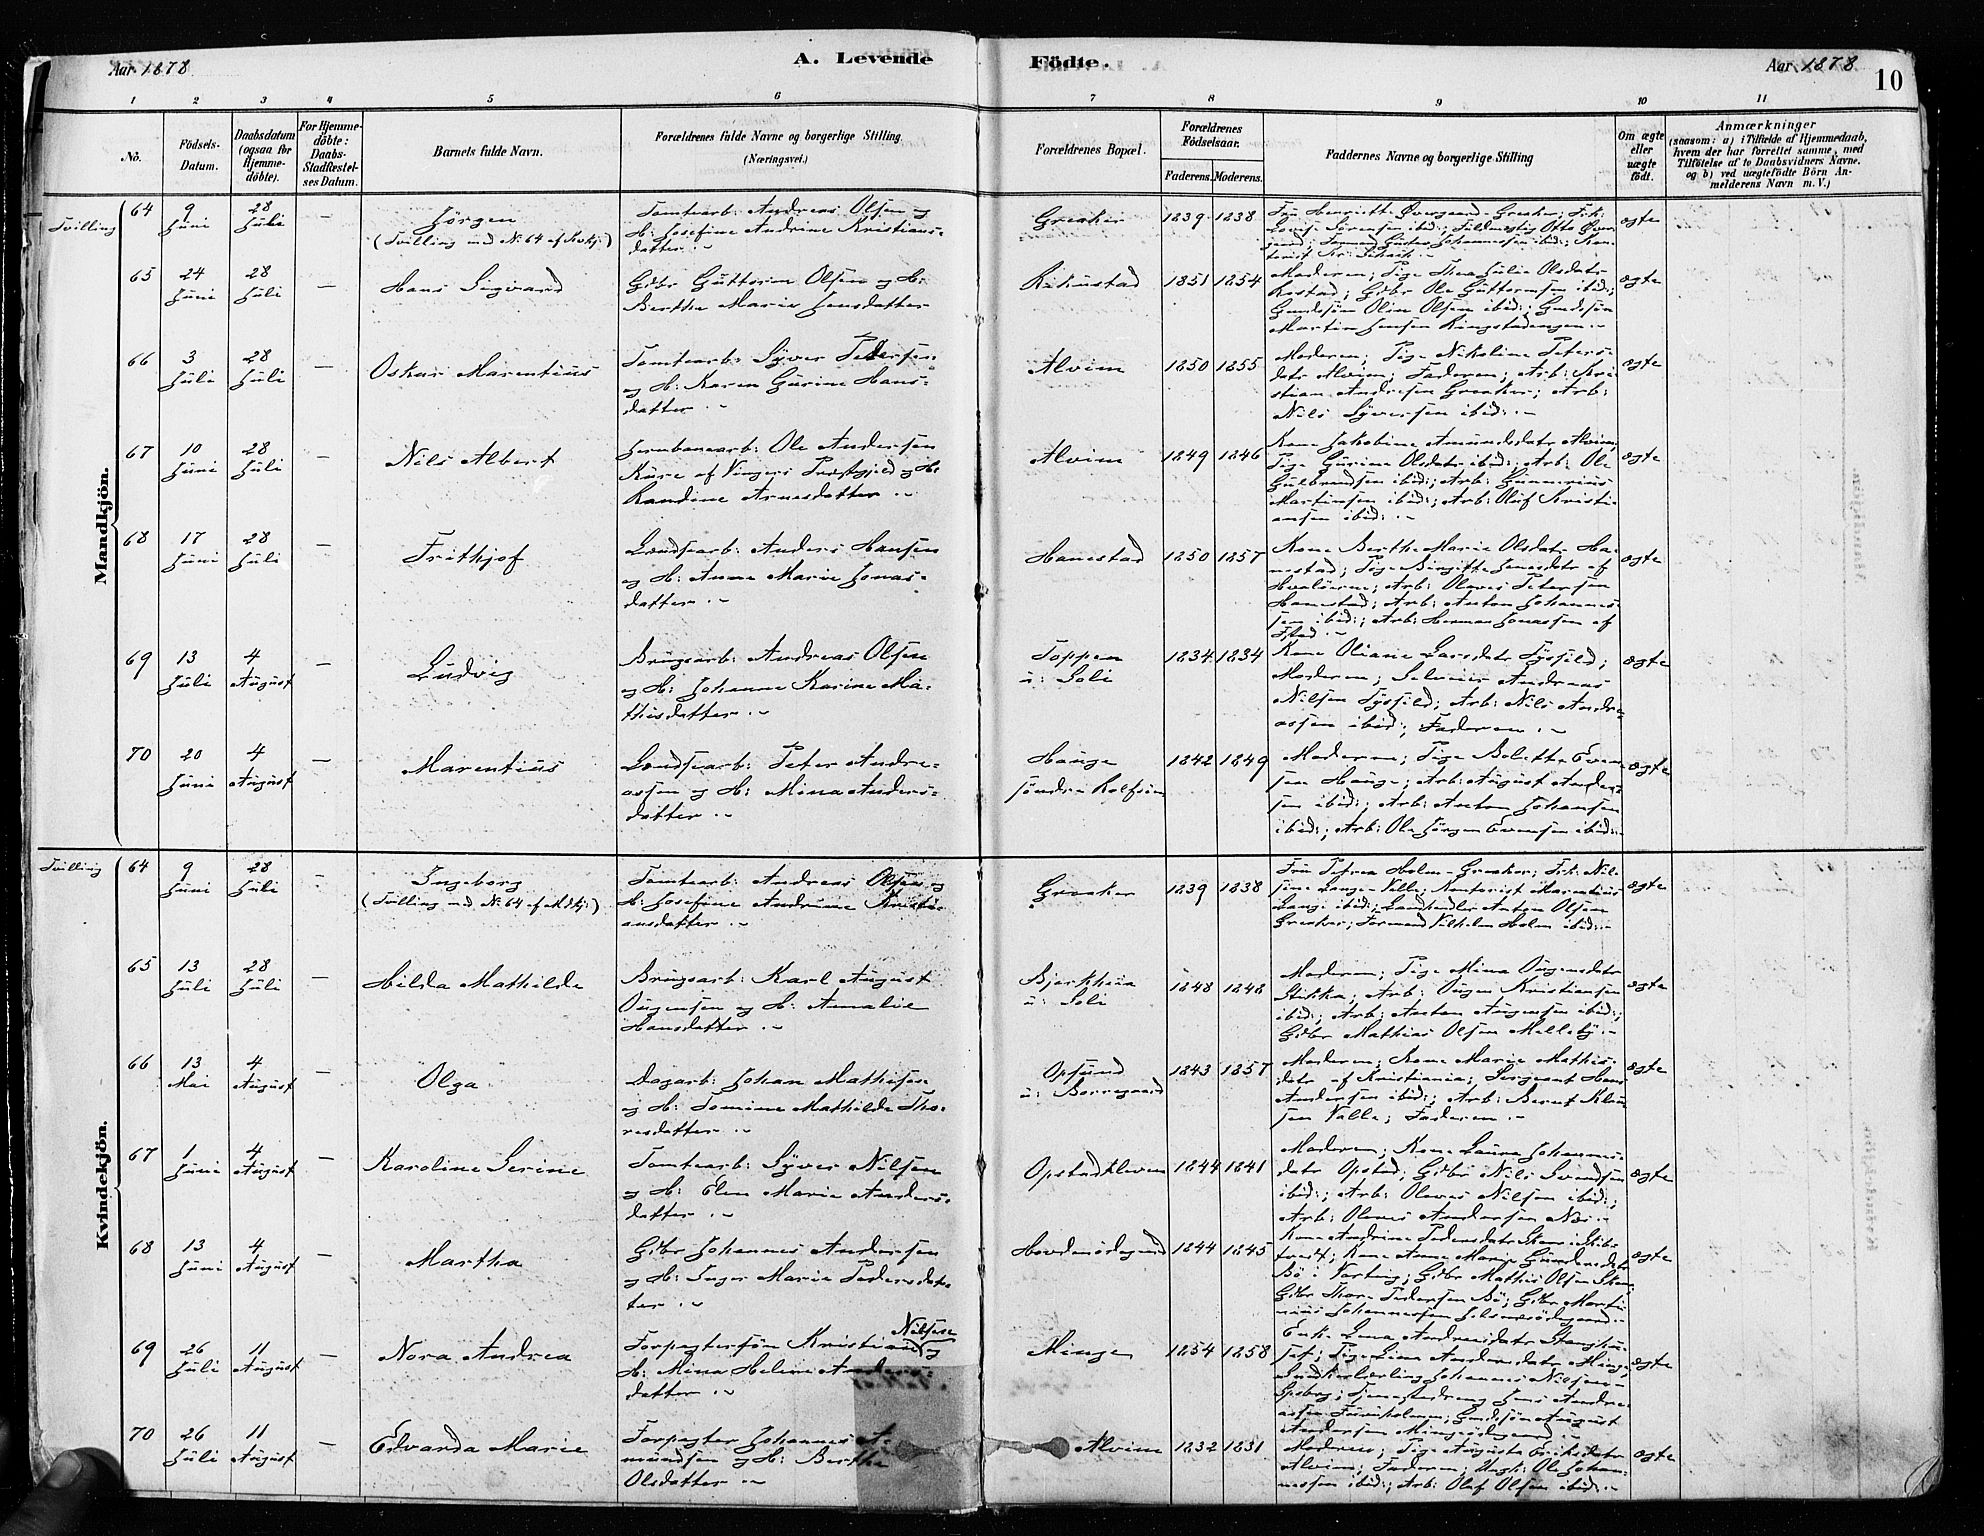 Aar 1878
A. Levende
Födte.
Aar 1878
10
1 2 3 4 5 6 7 8 9 10 11
No.
Födsels-Datum.
Daabsdatum (ogsaa for Hjemme-döbte).
For Hjemme-döbte: Daabs-Stadfæstel-ses Datum.
Barnets fulde Navn.
Forældrenes fulde Navne og borgerlige Stilling.
(Næringsvei.)
Forældrenes Bopæl.
Forældrenes Födselsaar.
Faderens. Moderens.
Faddernes Navne og borgerlige Stilling
Om ægte eller uægte födt.
Anmærkninger
(saasom: a) i Tilfælde af Hjemmedaab,
hvem der har forrettet samme, med
Tilföielse af to Daabsvidners Navne.
og b) ved uægtefödte Börn An-
melderens Navn m. V.)
Mandkjön.
Tvilling 64 9 Juni 28 Juli — Jörgen
(Tvilling med N. 64 af Kvkj:)
Tomtearb: Andreas Olsen og
H: Josefine Andrine Kristians-
datter
Greaker 1839 1838
Fru Henriette Övergaard Greaker; Frk:
Sörensen ibid:; Fuldmægtig Otto Över-
gaard; Formand Gustav Johannessen ibid:; Kon-
torist
ægte
65 24 Juni 28 Juli — Hans Sigvard
Gdbr Guttorm Olsen og H:
Berthe Marie Jensdatter
1851 1854
Moderen; Pige Thea Julie Olsdatr
Gdbr Ole Guttormsen ibid:;
Gaardsön Olin Olsen ibid:; Gaardsön
Martin Jensen Ringstadengen
ægte
66 3 Juli 28 Juli — Oskar Marentius
Tomtearb: Syver Pedersen
og H: Karen Gurine Hans-
datter
Alvim 1850 1855
Moderen; Pige Nikoline Peters-
datr Alvim; Faderen; Arb: Kri-
stian Andresen Greaker; Arb:
Nils Syversen ibid:
ægte
67 10 Juni 28 Juli — Nils Albert
Jernbanearb: Ole Andersen
Kure af Vingers Præstegjeld og H:
Randine Arnesdatter
Alvim 1849 1846
Kone Jakobine Amundsdatr Alvim;
Pige Gurine Olsdatr ibid:; Arb: Ole
Gulbrandsen ibid:; Arb: Gunnerius
Martinsen ibid:; Arb: Oluf Kristi-
ansen ibid:
ægte
68 17 Juni 28 Juli — Frithjof
Landsearb: Anders Hansen
og H: Anne Marie Jonas-
datter
Hanestad 1850 1857
Kone Berthe Marie Olsdatr Ha-
nestad; Pige Birgitte Jonasdatr af
Hvalöerne; Arb: Olaves Petersen
Hanestad; Arb: Anton Johannes-
sen ibid:; Arb: Herman Jonassen af
ægte
69 13 Juli 4 August — Ludvig
Brugsarb: Andreas Olsen
og H: Johanne Karine Ma-
thisdatter
Toppen
u: Soli
1834 1834
Kone Oliane Larsdatr
Moderen; Selveier Andreas
Nilsen Arb: Nils Andre-
assen ibid:; Faderen
ægte
70 20 Juni 4 August — Marentius
Landsearb: Peter Andre-
assen og H: Mina Anders-
datter
Hauge
söndre Rolfsöen
1842 1849
Moderen; Pige Bolette Even-
sen Hauge; Arb: August Ander-
sen ibid:; Arb: Anton Johansen
ibid:; Arb: Ole Jörgen Evensen ibid:
ægte
Kvindekjön.
Tvilling 64 9 Juni 28 Juli — Ingeborg
(Tvilling med N. 64 af Mdkj:)
Tomtearb: Andreas Olsen og
H: Josefine Andrine Kristi-
ansdatter
Greaker 1839 1838
Fru Petrea Holm Greaker; Frk: Nil-
sine Lange Valle; Kontorist Marentius
Lange ibid:; Landhandler Anton Olsen
Greaker; Formand Vilhelm Holm ibid:
ægte
65 13 Juli 28 Juli — Hilda Mathilde
Brugsarb: Karl August
Ougensen og H: Amalie
Hansdatter
Bjerkhua
u: Soli
1848 1848
Moderen; Pige Mina Ougensdatr
Arb: Ougen Kristiansen
ibid:; Arb: Anton Augensen ibid:;
Gdbr Mathias Olsen Melleby
ægte
66 13 Mai 4 August — Olga
Dagarb: Johan Mathisen
og H: Tomine Mathilde Tho-
resdatter
Opsund
u: Borregaard
1843 1857
Moderen; Kone Marie Mathis-
datr af Kristiania; Sergeant Hans
Andersen ibid:; Arb: Bernt Klau-
sen Valle; Faderen
ægte
67 1 Juni 4 August — Karoline Serine
Tomtearb: Syver Nilsen
og H: Elen Marie Anders-
datter
Opstadkleven 1844 1841
Moderen; Kone Laura Johannes-
datr Opstad; Gdbr Nils Svendsen
ibid:; Arb: Olaves Nilsen ibid:;
Arb: Olaves Andersen Næs
ægte
68 13 Juni 4 August — Martha
Gdbr Johannes Andersen
og H: Inger Marie Pedersdat-
ter
1844 1845
Kone Andrine Pedersdatr
Kone Anne Marie Gundersdatr
Bö i Varteig; Gdbr Mathis Olsen
Gdbr Thore Pedersen Bö; Gdbr Marti-
nius Johannessen
ægte
69 26 Juli 11 August — Nora Andrea
Forpagtersön Kristian Nilsen og
H: Mina Helene Anders-
datter
Minge 1854 1858
Enk. Lena Andreasdatr
Pige Lina Andersdatr Minge;
Johannes Nilsen
Tjenestedreng Jens Andre-
assen Furuholmen; Gaardsön August
Andersen
ægte
70 26 Juli 11 August — Edvarda Marie
Forpagter Johannes A-
mundsen og H: Berthe
Olsdatter
Alvim 1832 1831
Moderen; Pige Augusta Eriksdatr
Alvim; Faderen; Ungk: Ole Johan-
nessen ibid:; Arb: Olaf Olsen ibid:
ægte